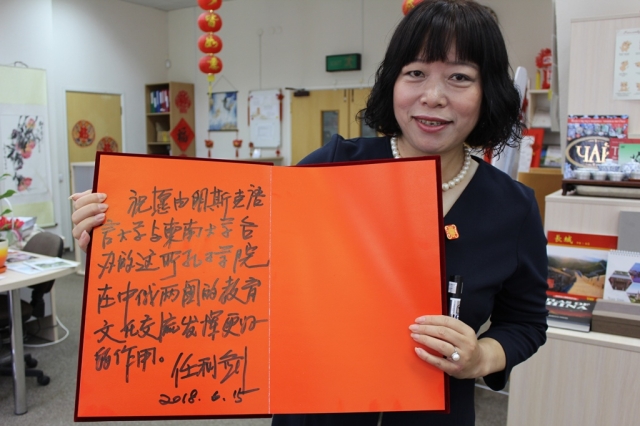 祝愿由明斯克语
言大学与東南大学合
办的这所孔子学院
在中俄两國的教育
文化交流发挥更好
的作用。 任利剑
2018.6.15
ЧАЙ
长城